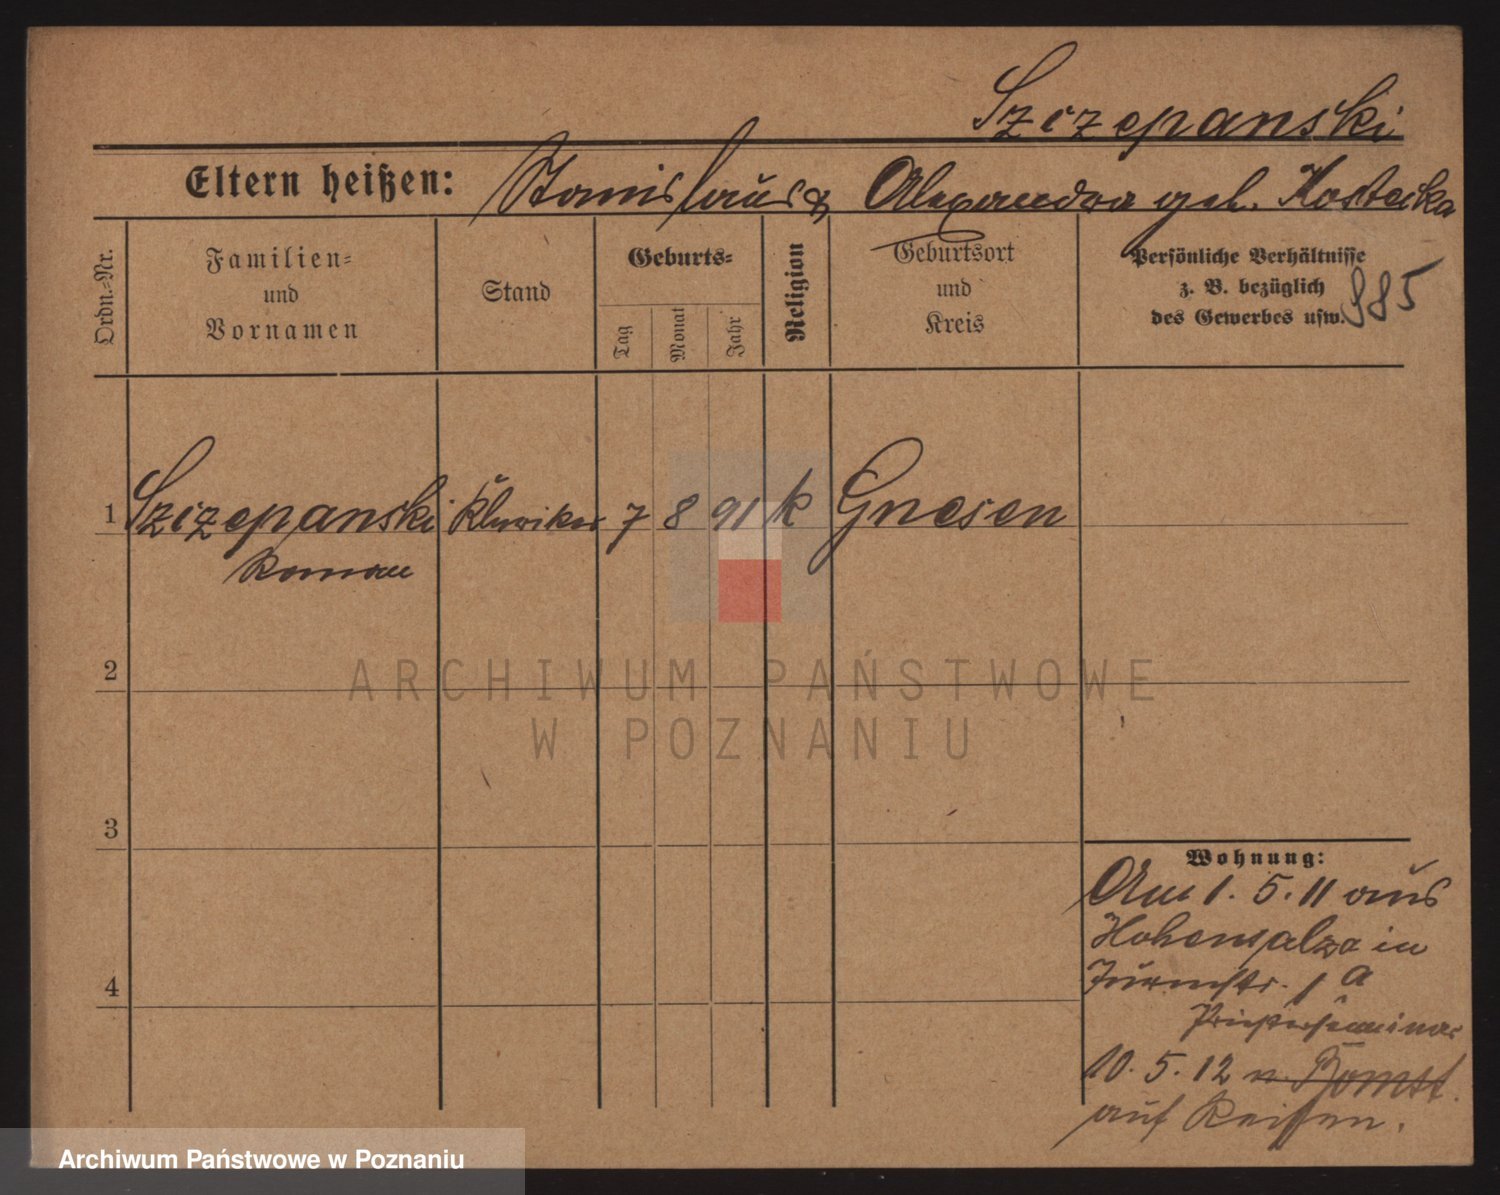 Szczepanski
Eltern heißen: Stanislaus & Alexandra geb. Kostecka
Ordn.=Nr.
Familien=
und
Vornamen
Stand
Geburts=
Tag
Monat
Jahr
Religion
Geburtsort
und
Kreis
Persönliche Verhältnisse
z. B. bezüglich
des Gewerbes usw.
985
1 Szczepanski Kleriker 7 8 91 k Gnesen
Roman
2
3
4
ARCHIWUM PAŃSTWOWE
W POZNANIU
Wohnung:
Am 1. 5. 11 aus
Hohensalza in
Turmstr. 1 a
Priesterseminar
10. 5. 12 n. Bomst.
auf Reisen.
Archiwum Państwowe w Poznaniu